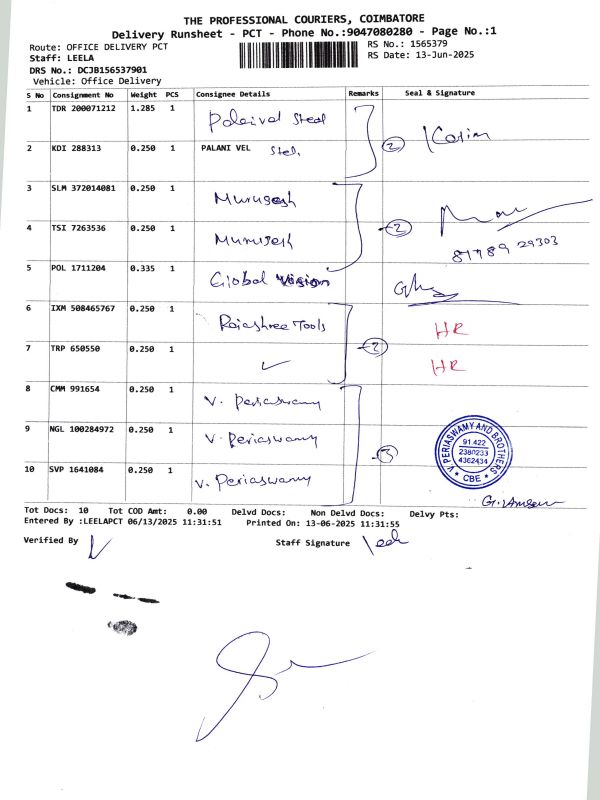 THE PROFESSIONAL COURIERS, COIMBATORE
Delivery Runsheet - PCT - Phone No.:9047080280 - Page No.:1
Route: OFFICE DELIVERY PCT
RS No.: 1565379
Staff: LEELA
RS Date: 13-Jun-2025
DRS No.: DCJB156537901
Vehicle: Office Delivery
S No Consignment No Weight PCS Consignee Details Remarks Seal & Signature
1 TDR 200071212 1.285 1 Palaivel Steel
2 KDI 288313 0.250 1 PALANI VEL Steel. 2
3 SLM 372014081 0.250 1 Murugesh
4 TSI 7263536 0.250 1 Murugesh 2
87789 29303
5 POL 1711204 0.335 1 Global Vision
6 IXM 508465767 0.250 1 Rajashree Tools HR
7 TRP 650550 0.250 1 ✓ 2 HR
8 CMM 991654 0.250 1 V. Periaswamy
9 NGL 100284972 0.250 1 V. Periaswamy 3
10 SVP 1641084 0.250 1 V. Periaswamy
V. PERIASWAMY AND BROTHERS
91.422
2380233
4362434
* CBE *
Tot Docs: 10 Tot COD Amt: 0.00 Delvd Docs: Non Delvd Docs: Delvy Pts:
Entered By :LEELAPCT 06/13/2025 11:31:51 Printed On: 13-06-2025 11:31:55
Verified By Staff Signature